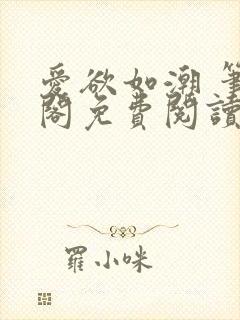 愛欲如潮 筆
閣免費閱讀
羅小咪